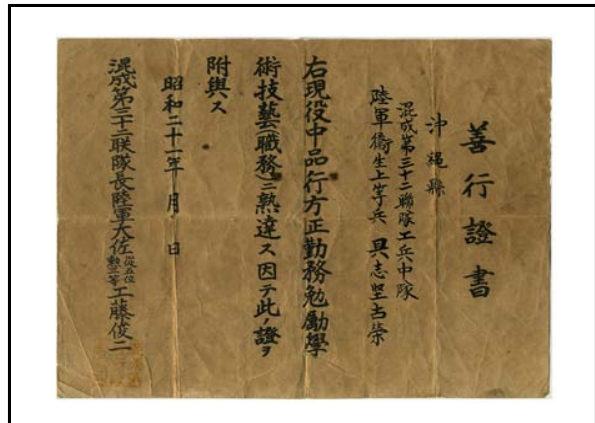 善行證書
沖縄縣
混成第三十二聯隊工兵中隊
陸軍衛生上等兵 具志堅古榮
右現役中品行方正勤務勉励學
術技藝(職務)ニ熟達ス因テ此ノ證ヲ
附與ス
昭和二十一年 月 日
混成第三十二联隊長陸軍大佐從五位勲三等工藤俊二